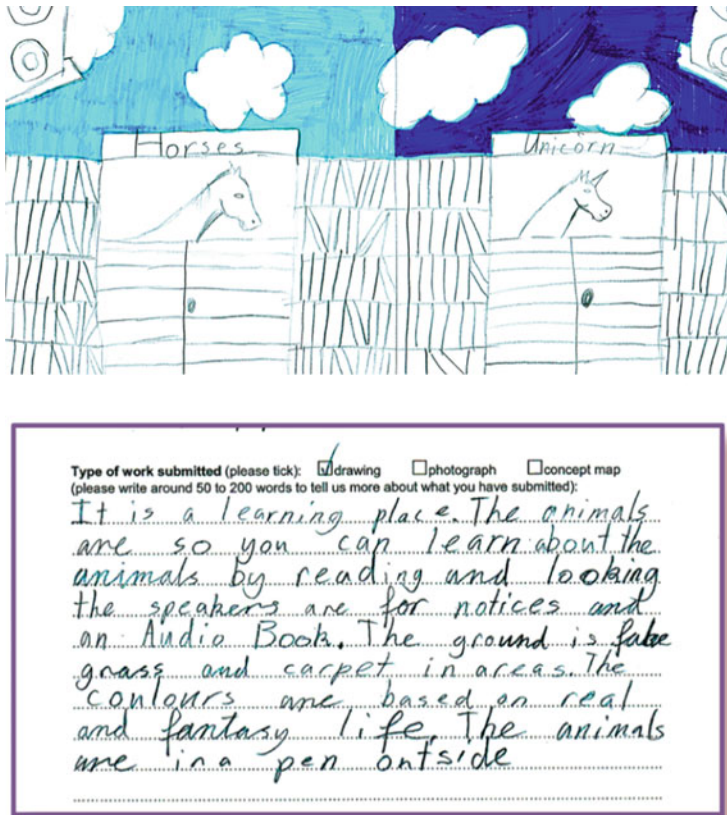 Horses
Unicorn
Type of work submitted (please tick): ☑drawing ☐photograph ☐concept map
(please write around 50 to 200 words to tell us more about what you have submitted):
It is a learning place. The animals
are so you can learn about the
animals by reading and looking
the speakers are for notices and
an Audio Book. The ground is fake
grass and carpet in areas. The
conlours are based on real
and fantasy life. The animals
are in a pen ontside